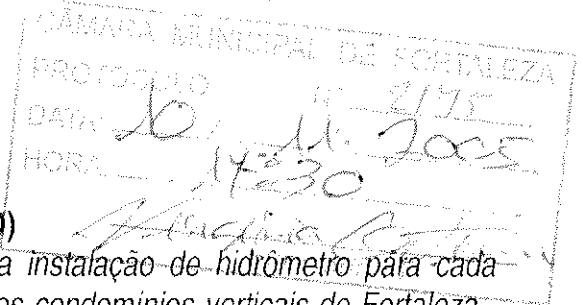 CÂMARA MUNICIPAL DE FORTALEZA
PROTOCOLO
N° 2175
DATA: 20 / 11. 2005
HORA: 14:30
a instalação de hidrômetro para cada
os condomínios verticais de Fortaleza